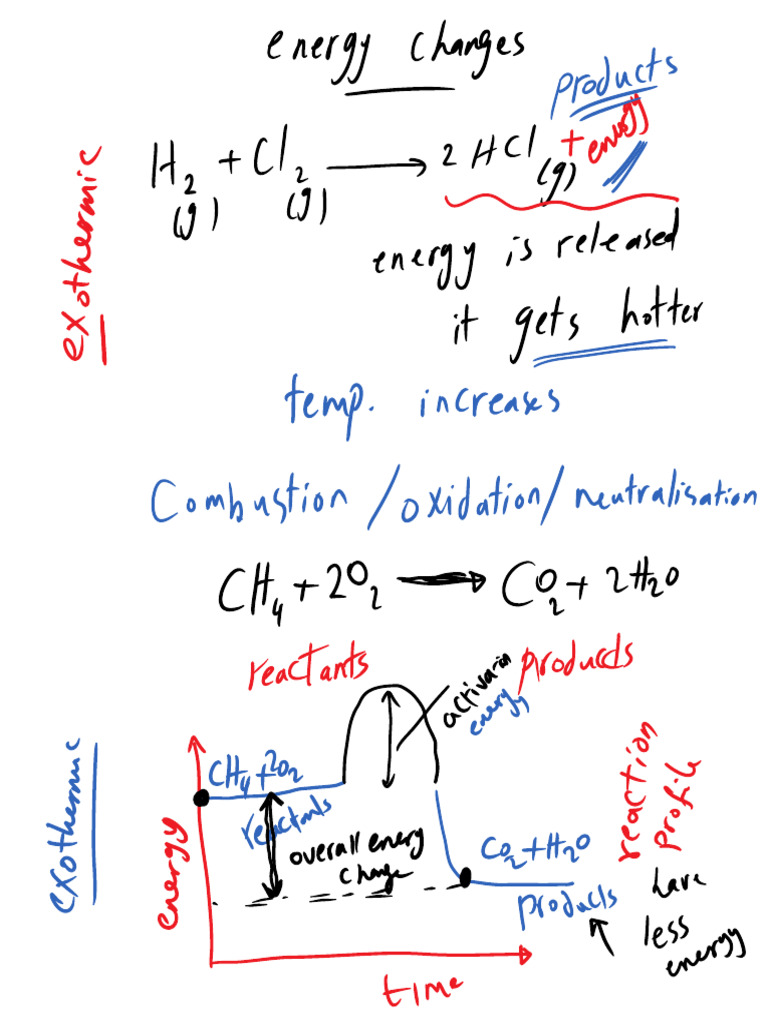 energy changes
products
H₂(g) + Cl₂(g) → 2 HCl(g) + energy
exothermic
energy is released
it gets hotter
temp. increases
Combustion / oxidation / neutralisation
CH₄ + 2O₂ → CO₂ + 2H₂O
reactants
products
activation energy
exothermic
energy
CH₄ + 2O₂
reactants
overall energy
change
CO₂ + H₂O
products
reaction
profile
have
less
energy
time